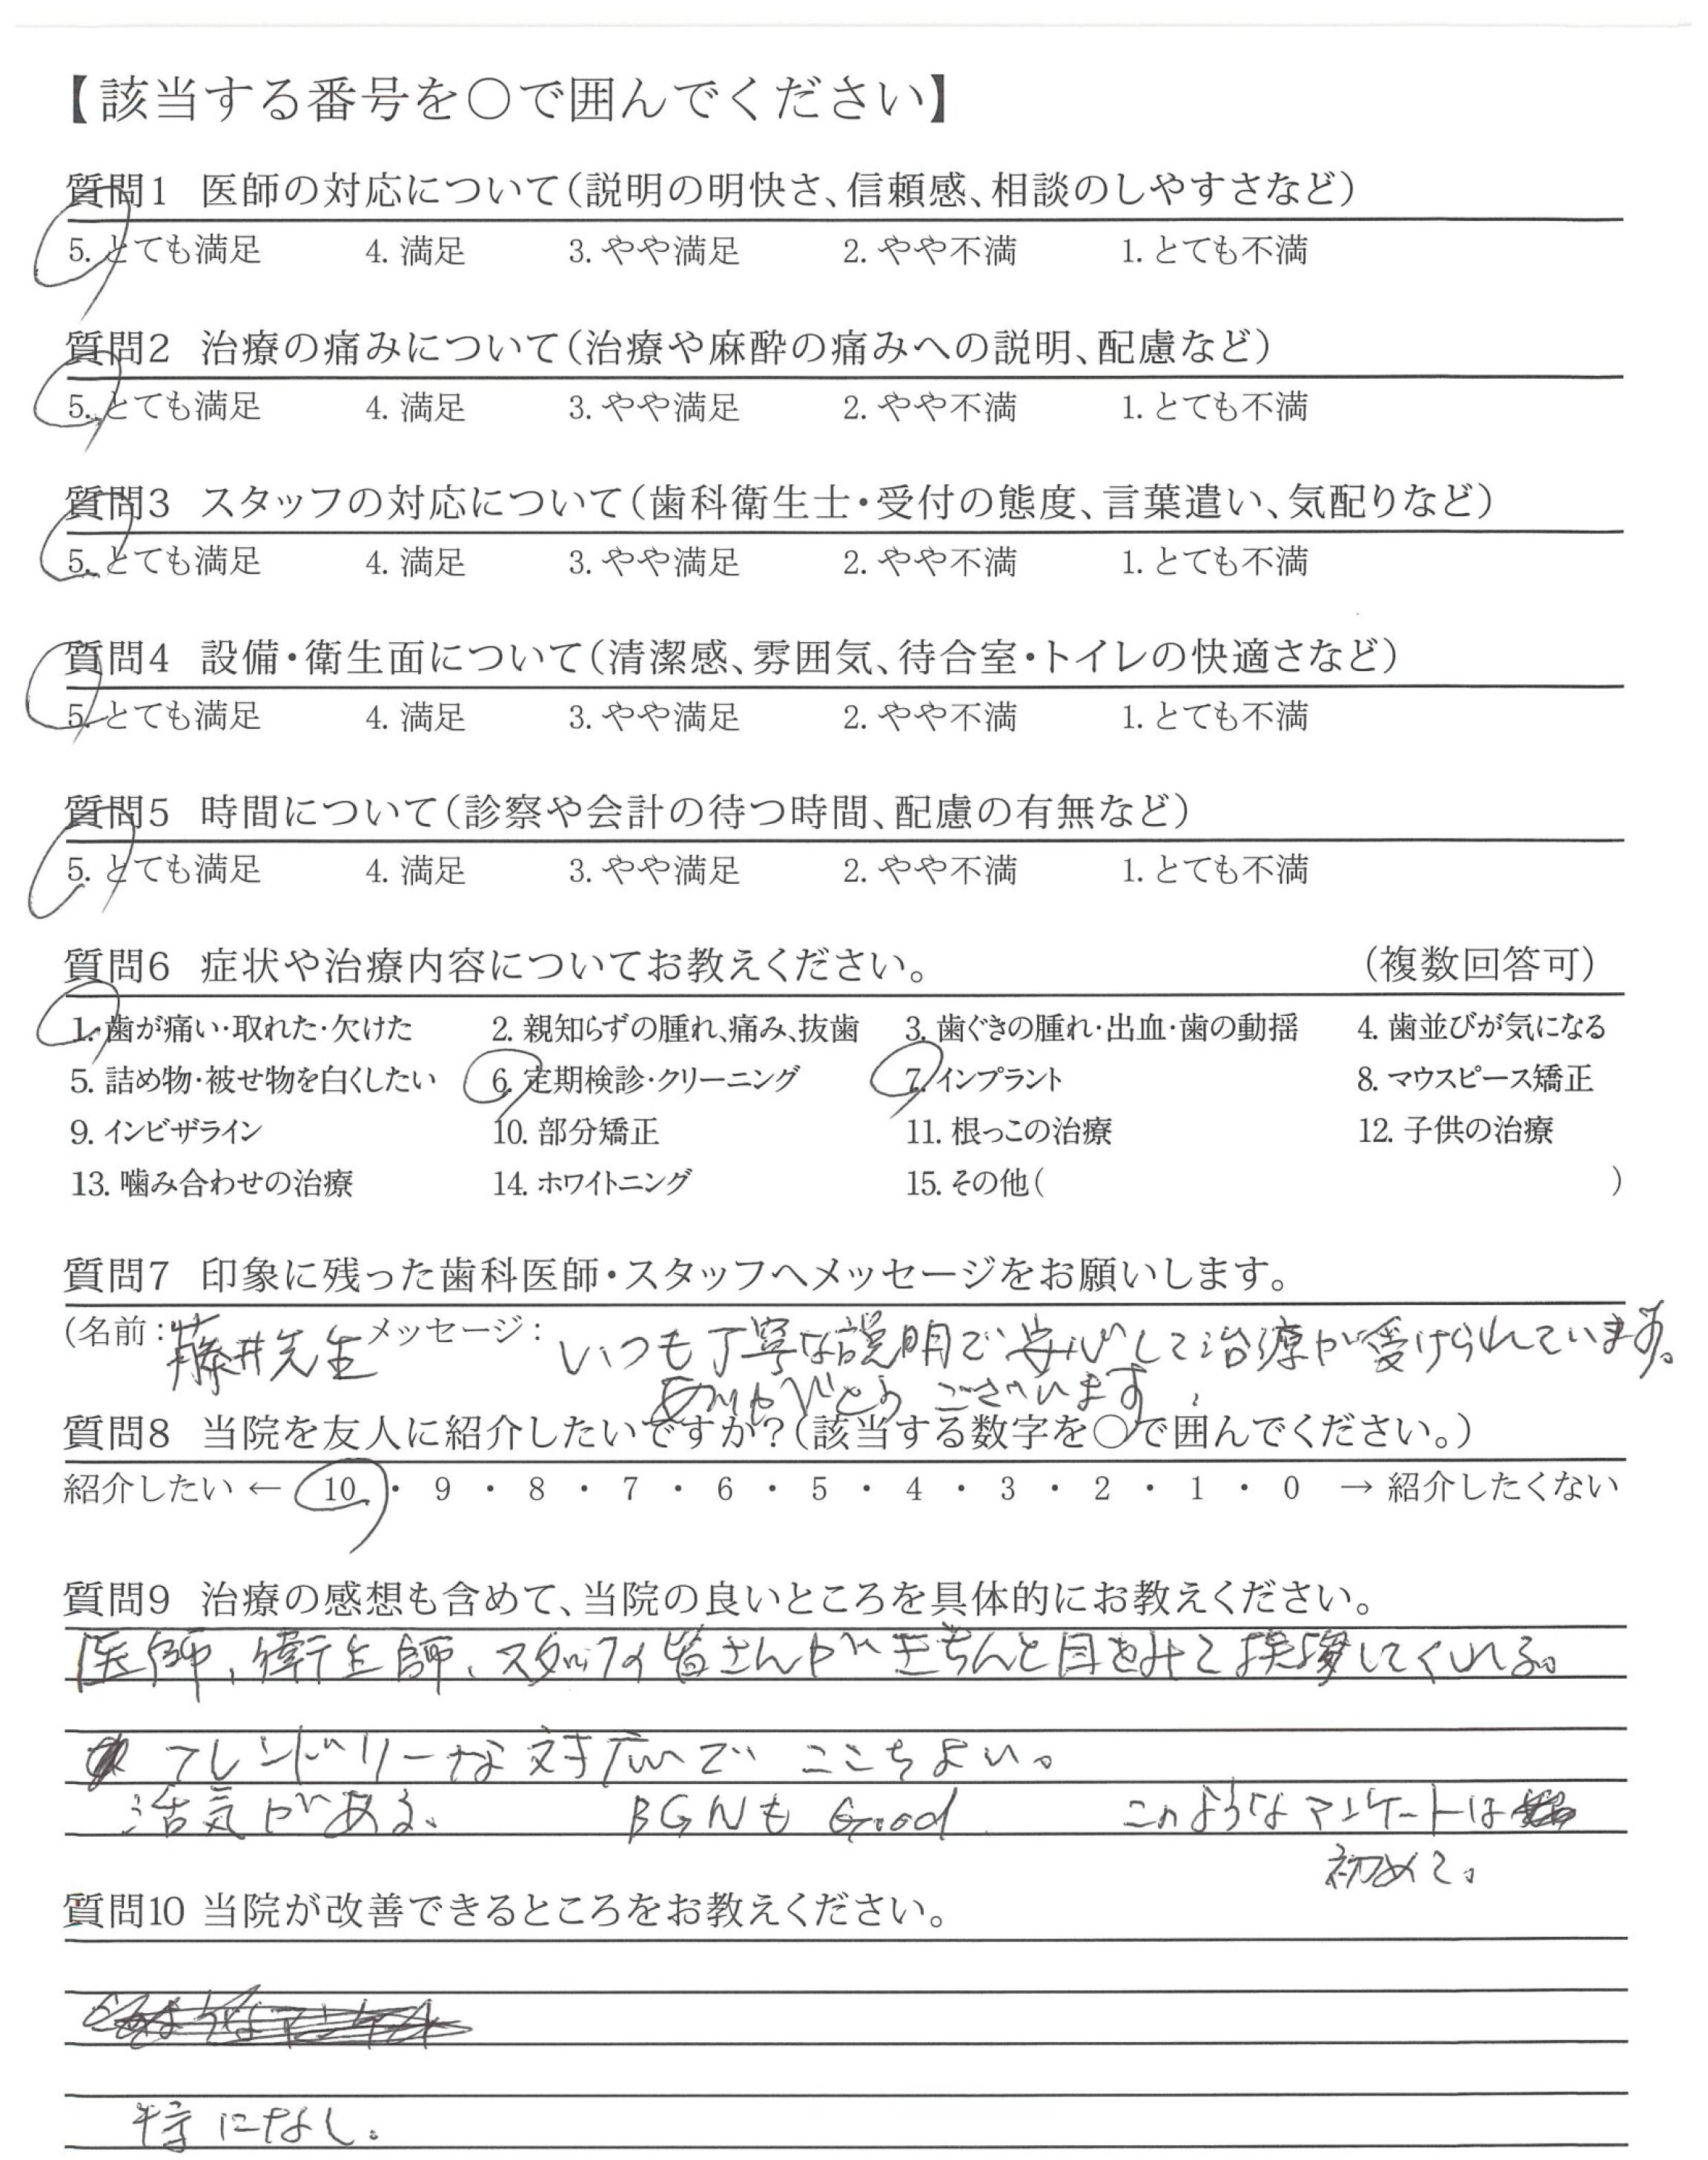 【該当する番号を○で囲んでください】
質問1 医師の対応について(説明の明快さ、信頼感、相談のしやすさなど)
5. とても満足 4. 満足 3. やや満足 2. やや不満 1. とても不満
質問2 治療の痛みについて(治療や麻酔の痛みへの説明、配慮など)
5. とても満足 4. 満足 3. やや満足 2. やや不満 1. とても不満
質問3 スタッフの対応について(歯科衛生士・受付の態度、言葉遣い、気配りなど)
5. とても満足 4. 満足 3. やや満足 2. やや不満 1. とても不満
質問4 設備・衛生面について(清潔感、雰囲気、待合室・トイレの快適さなど)
5. とても満足 4. 満足 3. やや満足 2. やや不満 1. とても不満
質問5 時間について(診察や会計の待つ時間、配慮の有無など)
5. とても満足 4. 満足 3. やや満足 2. やや不満 1. とても不満
質問6 症状や治療内容についてお教えください。 (複数回答可)
1. 歯が痛い・取れた・欠けた 2. 親知らずの腫れ、痛み、抜歯 3. 歯ぐきの腫れ・出血・歯の動揺 4. 歯並びが気になる
5. 詰め物・被せ物を白くしたい 6. 定期検診・クリーニング 7. インプラント 8. マウスピース矯正
9. インビザライン 10. 部分矯正 11. 根っこの治療 12. 子供の治療
13. 噛み合わせの治療 14. ホワイトニング 15. その他( )
質問7 印象に残った歯科医師・スタッフへメッセージをお願いします。
(名前:藤井先生 メッセージ: いつも丁寧な説明で安心して治療が受けられています。
ありがとうございます
質問8 当院を友人に紹介したいですか?(該当する数字を○で囲んでください。)
紹介したい ← 10 ・ 9 ・ 8 ・ 7 ・ 6 ・ 5 ・ 4 ・ 3 ・ 2 ・ 1 ・ 0 → 紹介したくない
質問9 治療の感想も含めて、当院の良いところを具体的にお教えください。
医師、衛生師、スタッフの皆さんがきちんと目をみて挨拶してくれる。
フレンドリーな対応でここちよい。
活気がある。 BGMも Good このようなアンケートは
初めて。
質問10 当院が改善できるところをお教えください。
特になし。